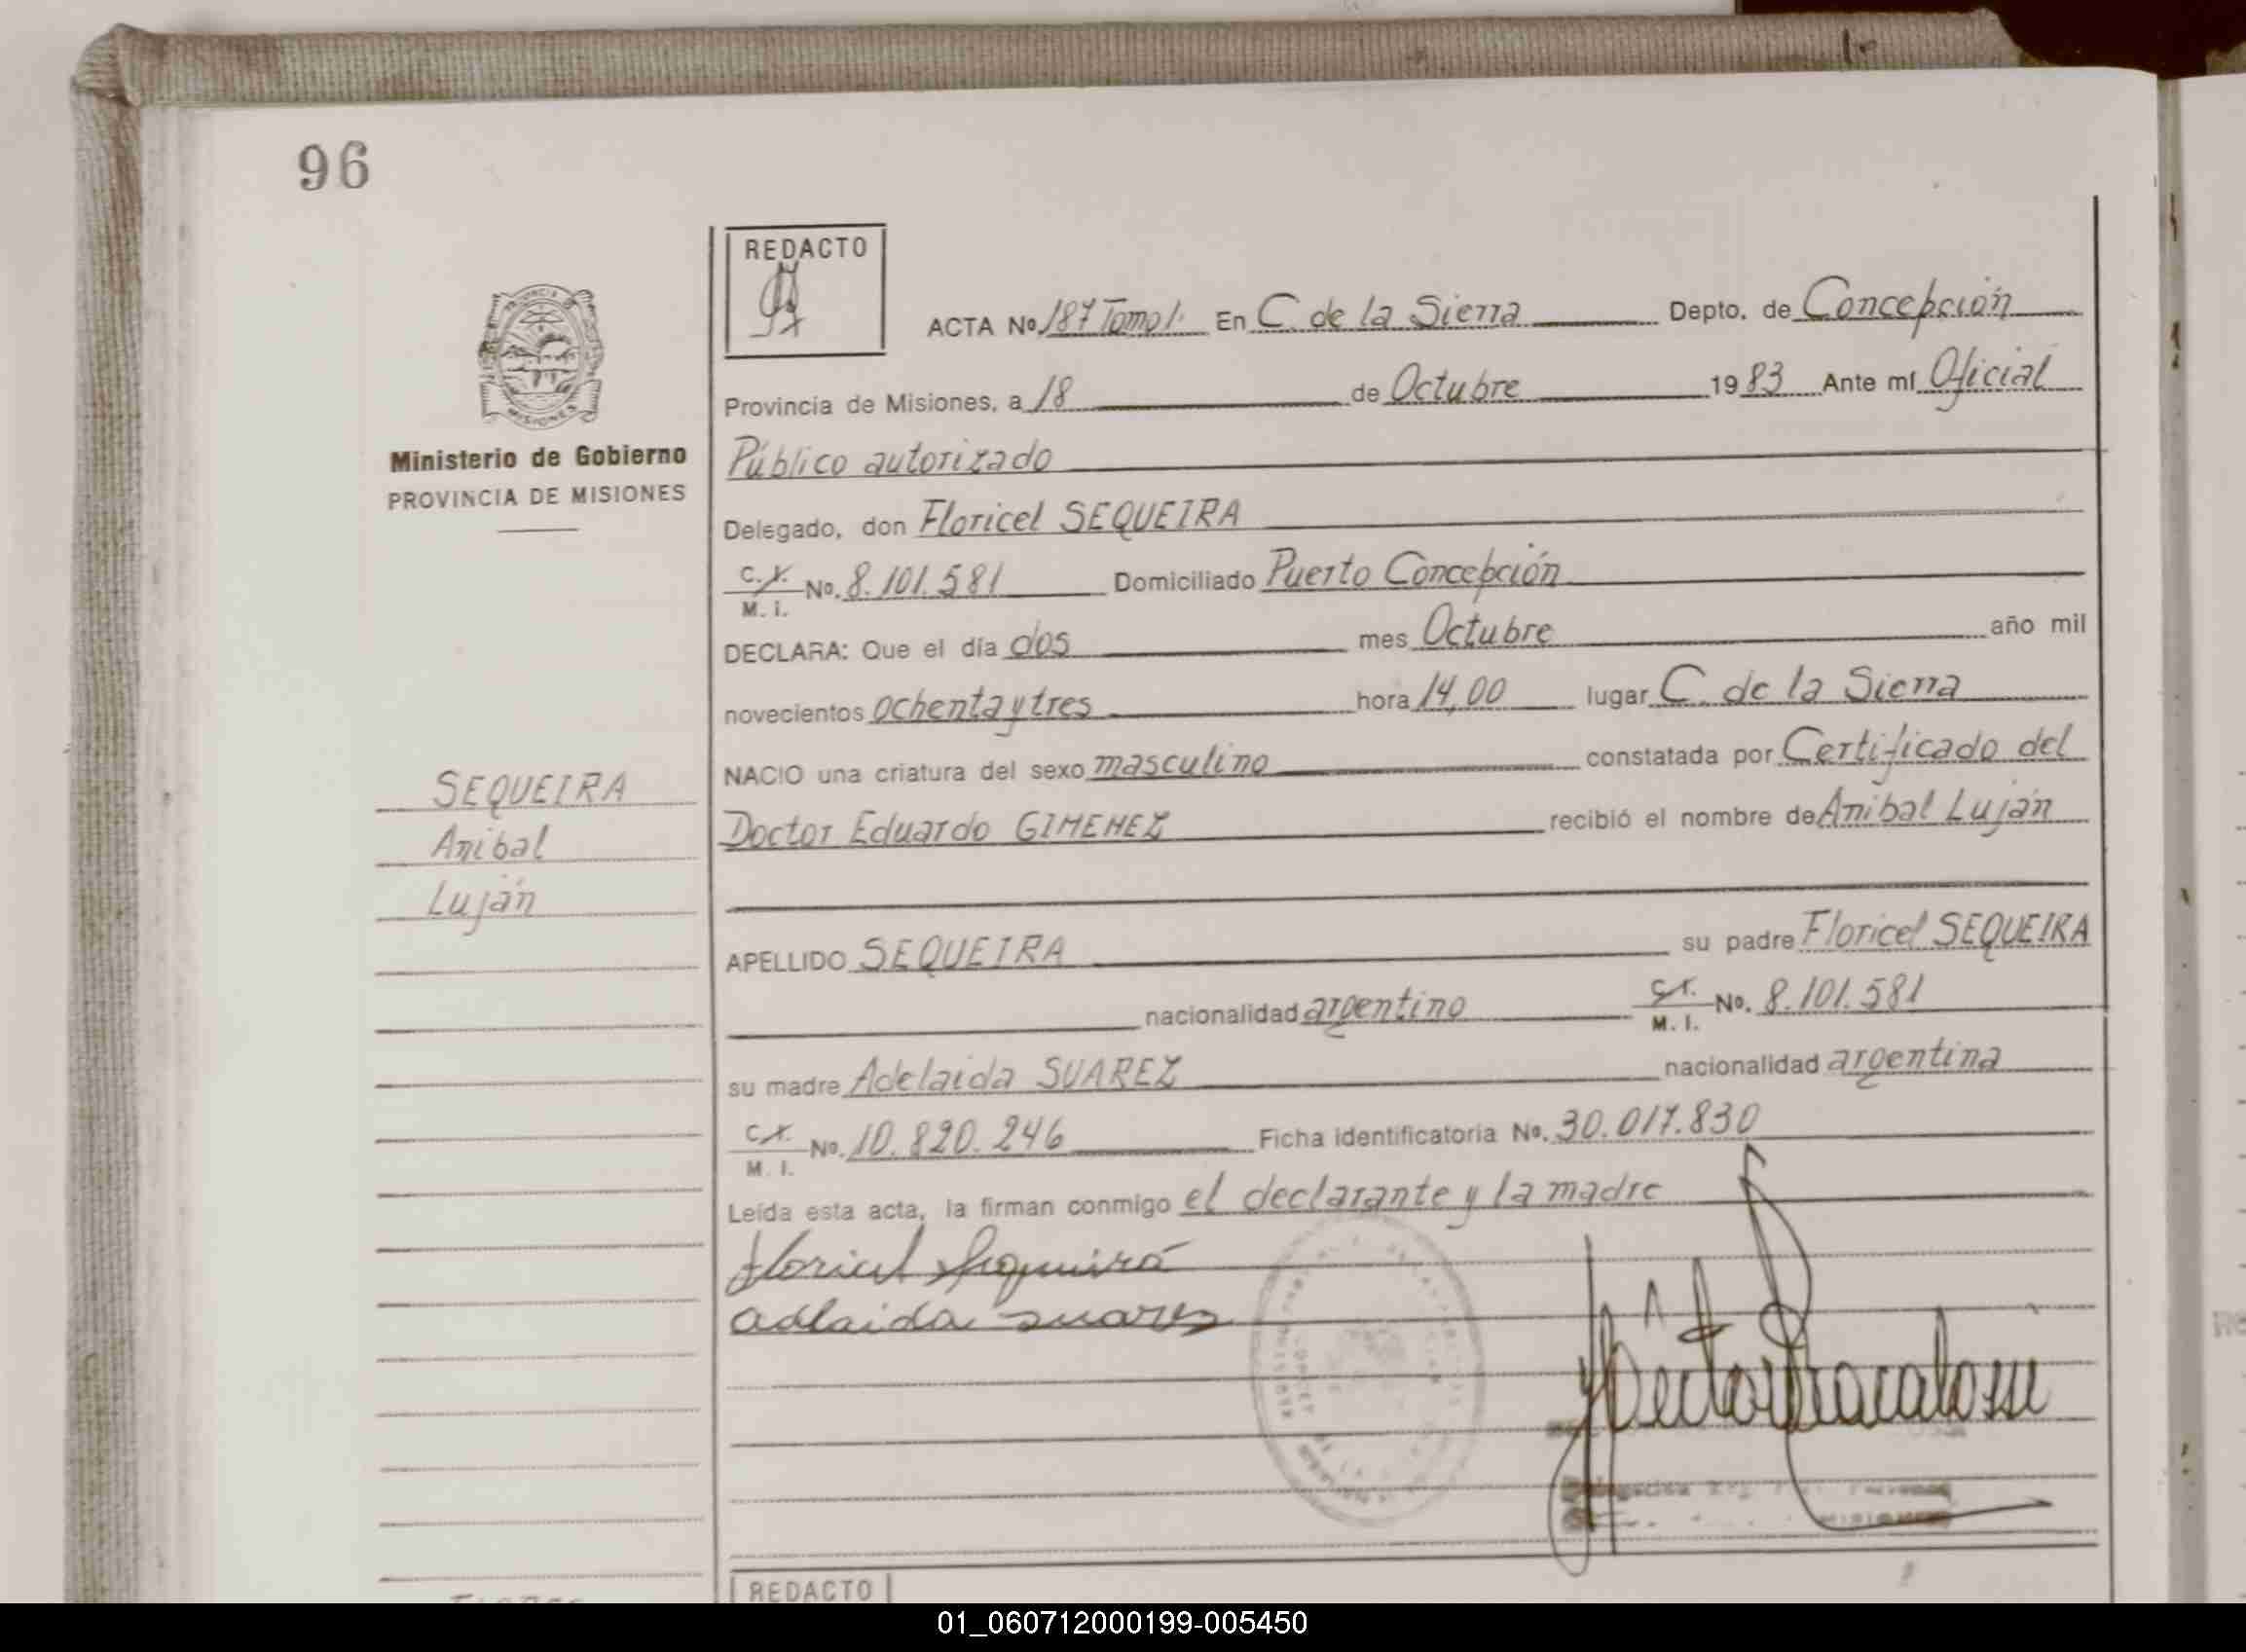 96
REDACTO
ACTA No. 187 Tomo I. En C. de la Sierra Depto. de Concepción
Provincia de Misiones, a 18 de Octubre 1983 Ante mí Oficial
Público autorizado
Delegado, don Floricel SEQUEIRA
C. I. M. I. No. 8.101.581 Domiciliado Puerto Concepción
DECLARA: Que el día dos mes Octubre año mil
novecientos ochenta y tres hora 14,00 lugar C. de la Sierra
NACIO una criatura del sexo masculino constatada por Certificado del
Doctor Eduardo GIMENEZ recibió el nombre de Anibal Luján
APELLIDO SEQUEIRA su padre Floricel SEQUEIRA
nacionalidad argentino C. I. M. I. No. 8.101.581
su madre Adelaida SUAREZ nacionalidad argentina
C. I. M. I. No. 10.820.246 Ficha identificatoria No. 30.017.830
Leída esta acta, la firman conmigo el declarante y la madre
Floricel Sequeira
adelaida suarez
PROVINCIA DE
MISIONES
Ministerio de Gobierno
PROVINCIA DE MISIONES
SEQUEIRA
Anibal
Luján
REDACTO
01_060712000199-005450